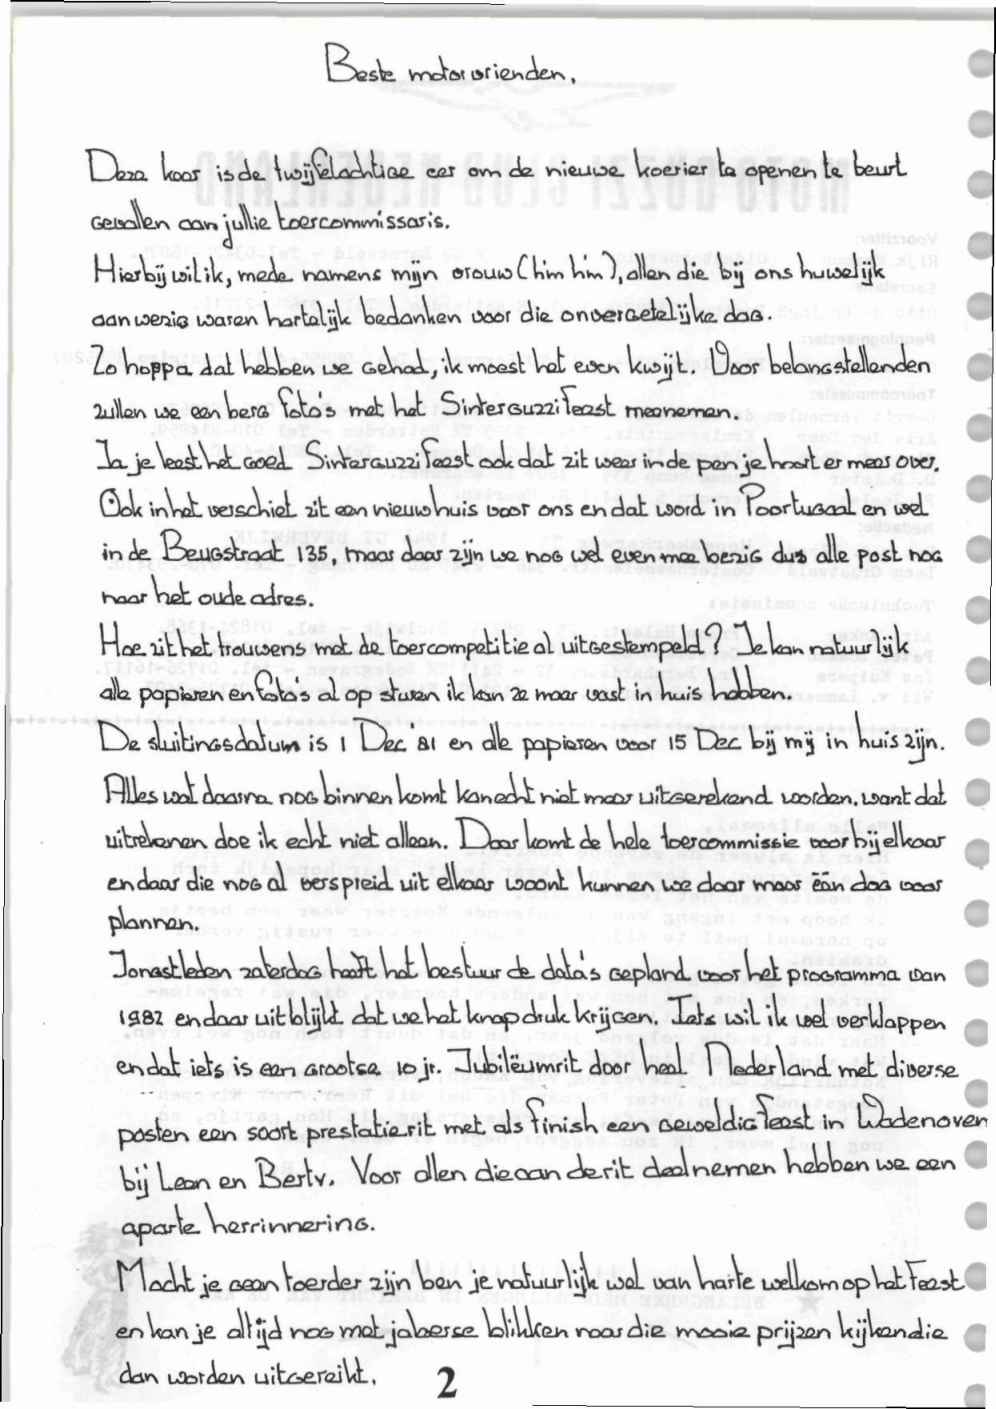 Beste motorvrienden.
Deze keer is de twijfelachtige eer om de nieuwe koerier te openen te beurt
gevallen aan jullie toercommissaris.
Hierbij wil ik, mede namens mijn vrouw (him him), allen die bij ons huwelijk
aanwezig waren hartelijk bedanken voor die onvergetelijke dag.
Zo hoppa dat hebben we gehad, ik moest het even kwijt. Voor belangstellenden
zullen we een berg foto's met het Sinterguzzifeest meenemen.
Ja je leest het goed Sinterguzzifeest ook dat zit weer in de pen je hoort er meer over.
Ook in het verschiet zit een nieuw huis voor ons en dat word in Poortugaal en wel
in de Beugstraat 135, maar daar zijn we nog wel even mee bezig dus alle post nog
naar het oude adres.
Hoe zit het trouwens met de toercompetitie al uitgestempeld? Je kan natuurlijk
alle papieren en foto's al op sturen ik kan ze maar vast in huis hebben.
De sluitingsdatum is 1 Dec '81 en alle papieren voor 15 Dec bij mij in huis zijn.
Alles wat daarna nog binnen komt kan echt niet meer uitgerekend worden. want dat
uitrekenen doe ik echt niet alleen. Daar komt de hele toercommissie voor bij elkaar
en daar die nog al verspreid uit elkaar woont kunnen we daar maar één dag voor
plannen.
Jongstleden zaterdag heeft het bestuur de data's gepland voor het programma van
1982 en daar uit blijkt dat we het knap druk krijgen. Iets wil ik wel verklappen
en dat iets is een grootse 10 jr. Jubilëumrit door heel Nederland met diverse
posten een soort prestatierit met als finish een geweldig feest in Wadenoyen
bij Leon en Bertv. Voor allen die aan de rit deelnemen hebben we een
aparte herrinnering.
Mocht je geen toerder zijn ben je natuurlijk wel van harte welkom op het feest
en kan je altijd nog met jaloerse blikken naar die mooie prijzen kijken die
dan worden uitgereikt.
2